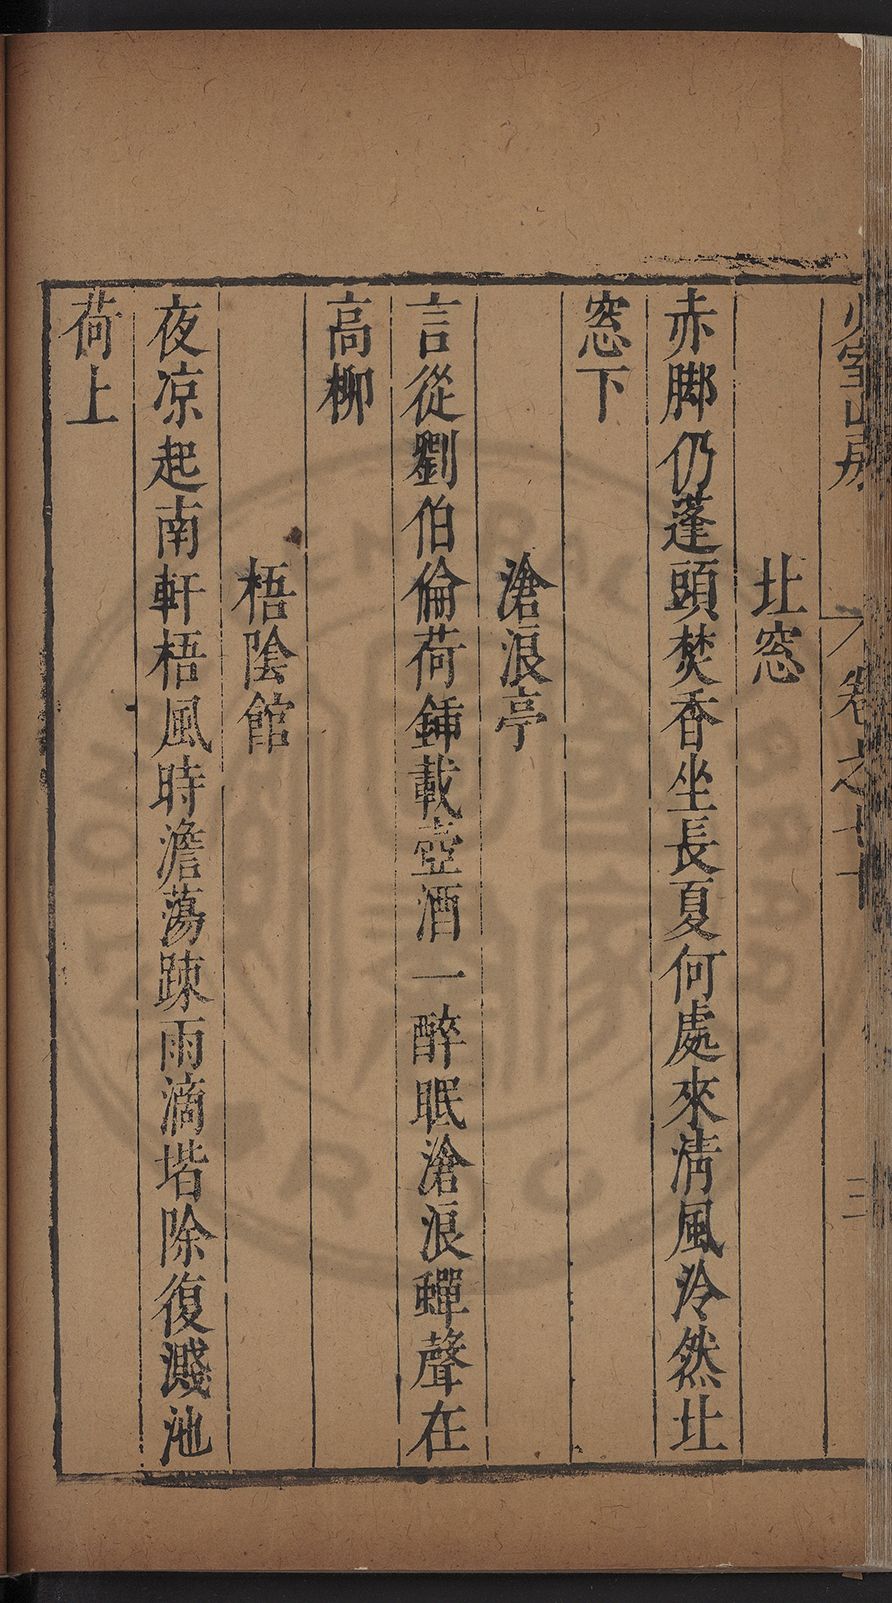 少室山房 卷之七十 三
北窓
赤脚仍蓬頭焚香坐長夏何處來清風泠然北
窓下
滄浪亭
言從劉伯倫荷鍤載壺酒一醉眠滄浪蟬聲在
高柳
梧陰館
夜凉起南軒梧風時澹蕩踈雨滴堦除復濺池
荷上